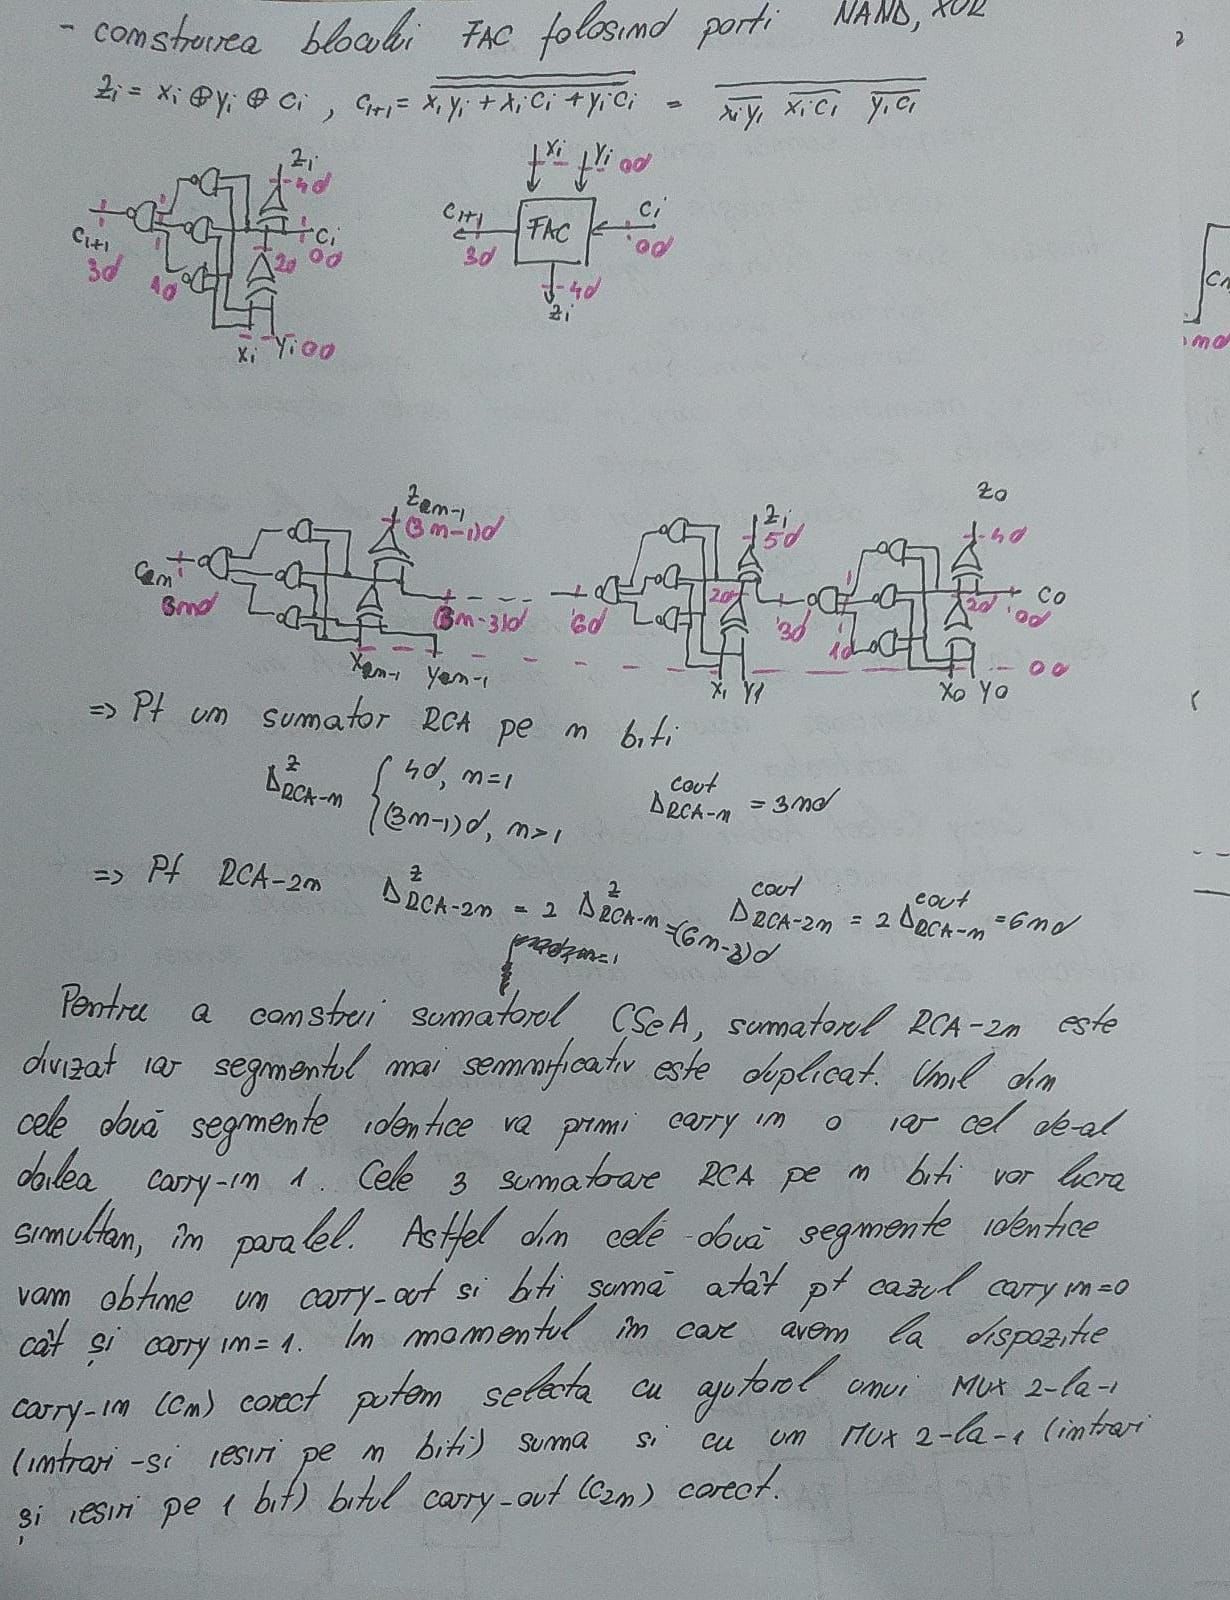 - construirea blocului FAC folosind porti NAND, XOR
Zi = xi ⊕ yi ⊕ ci , Ci+1 = xiyi + xici + yici = xiyi xici yici
Zi
4d
Ci+1
3d
1d
2d
Ci
0d
xi yi 0d
xi yi 0d
Ci+1
3d
FAC
Ci
0d
4d
Zi
Cn
nd
Z2n-1
(3n-1)d
C2n
3nd
(3n-3)d
X2n-1 Y2n-1
Zi
5d
6d
2d
3d
X1 Y1
Z0
4d
C0
0d
2d
1d
0d
X0 Y0
=> Pt un sumator RCA pe n biti
Δ z RCA-n { 4d, n=1
(3n-1)d, n>1
Δ cout RCA-n = 3nd
=> Pt RCA-2n Δ z RCA-2n = 2 Δ z RCA-n = (6n-2)d Δ cout RCA-2n = 2 Δ cout RCA-n = 6nd
Pentru a construi sumatorul CSeA, sumatorul RCA-2n este
divizat iar segmentul mai semnificativ este duplicat. Unul din
cele două segmente identice va primi carry in 0 iar cel de-al
doilea carry-in 1. Cele 3 sumatoare RCA pe n biti vor lucra
simultan, în paralel. Astfel din cele două segmente identice
vom obtine un carry-out si biti sumă atât pt cazul carry in=0
cât și carry in=1. In momentul în care avem la dispozitie
carry-in (Cn) corect putem selecta cu ajutorul unui MUX 2-la-1
(intrari -si iesiri pe n biti) suma si cu un MUX 2-la-1 (intrari
și iesiri pe 1 bit) bitul carry-out (C2n) corect.